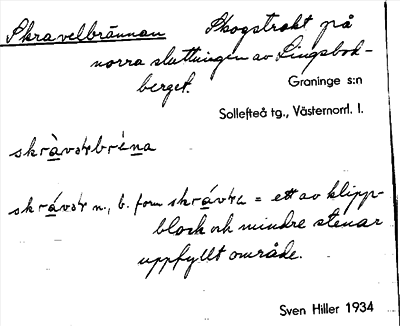 Skravelbrännan Skogstrakt på
norra sluttningen av Lingsbod-
berget.
Graninge s:n
Sollefteå tg., Västernorrl. l.
skràvəɫbréna
skrávəɫ n., b. form skrávɫa = ett av klipp-
block och mindre stenar
uppfyllt område.
Sven Hiller 1934